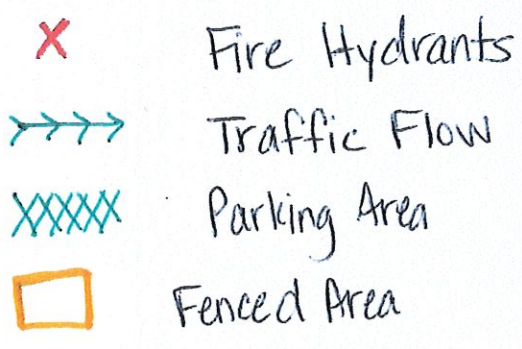 Fire Hydrants
Traffic Flow
Parking Area
Fenced Area